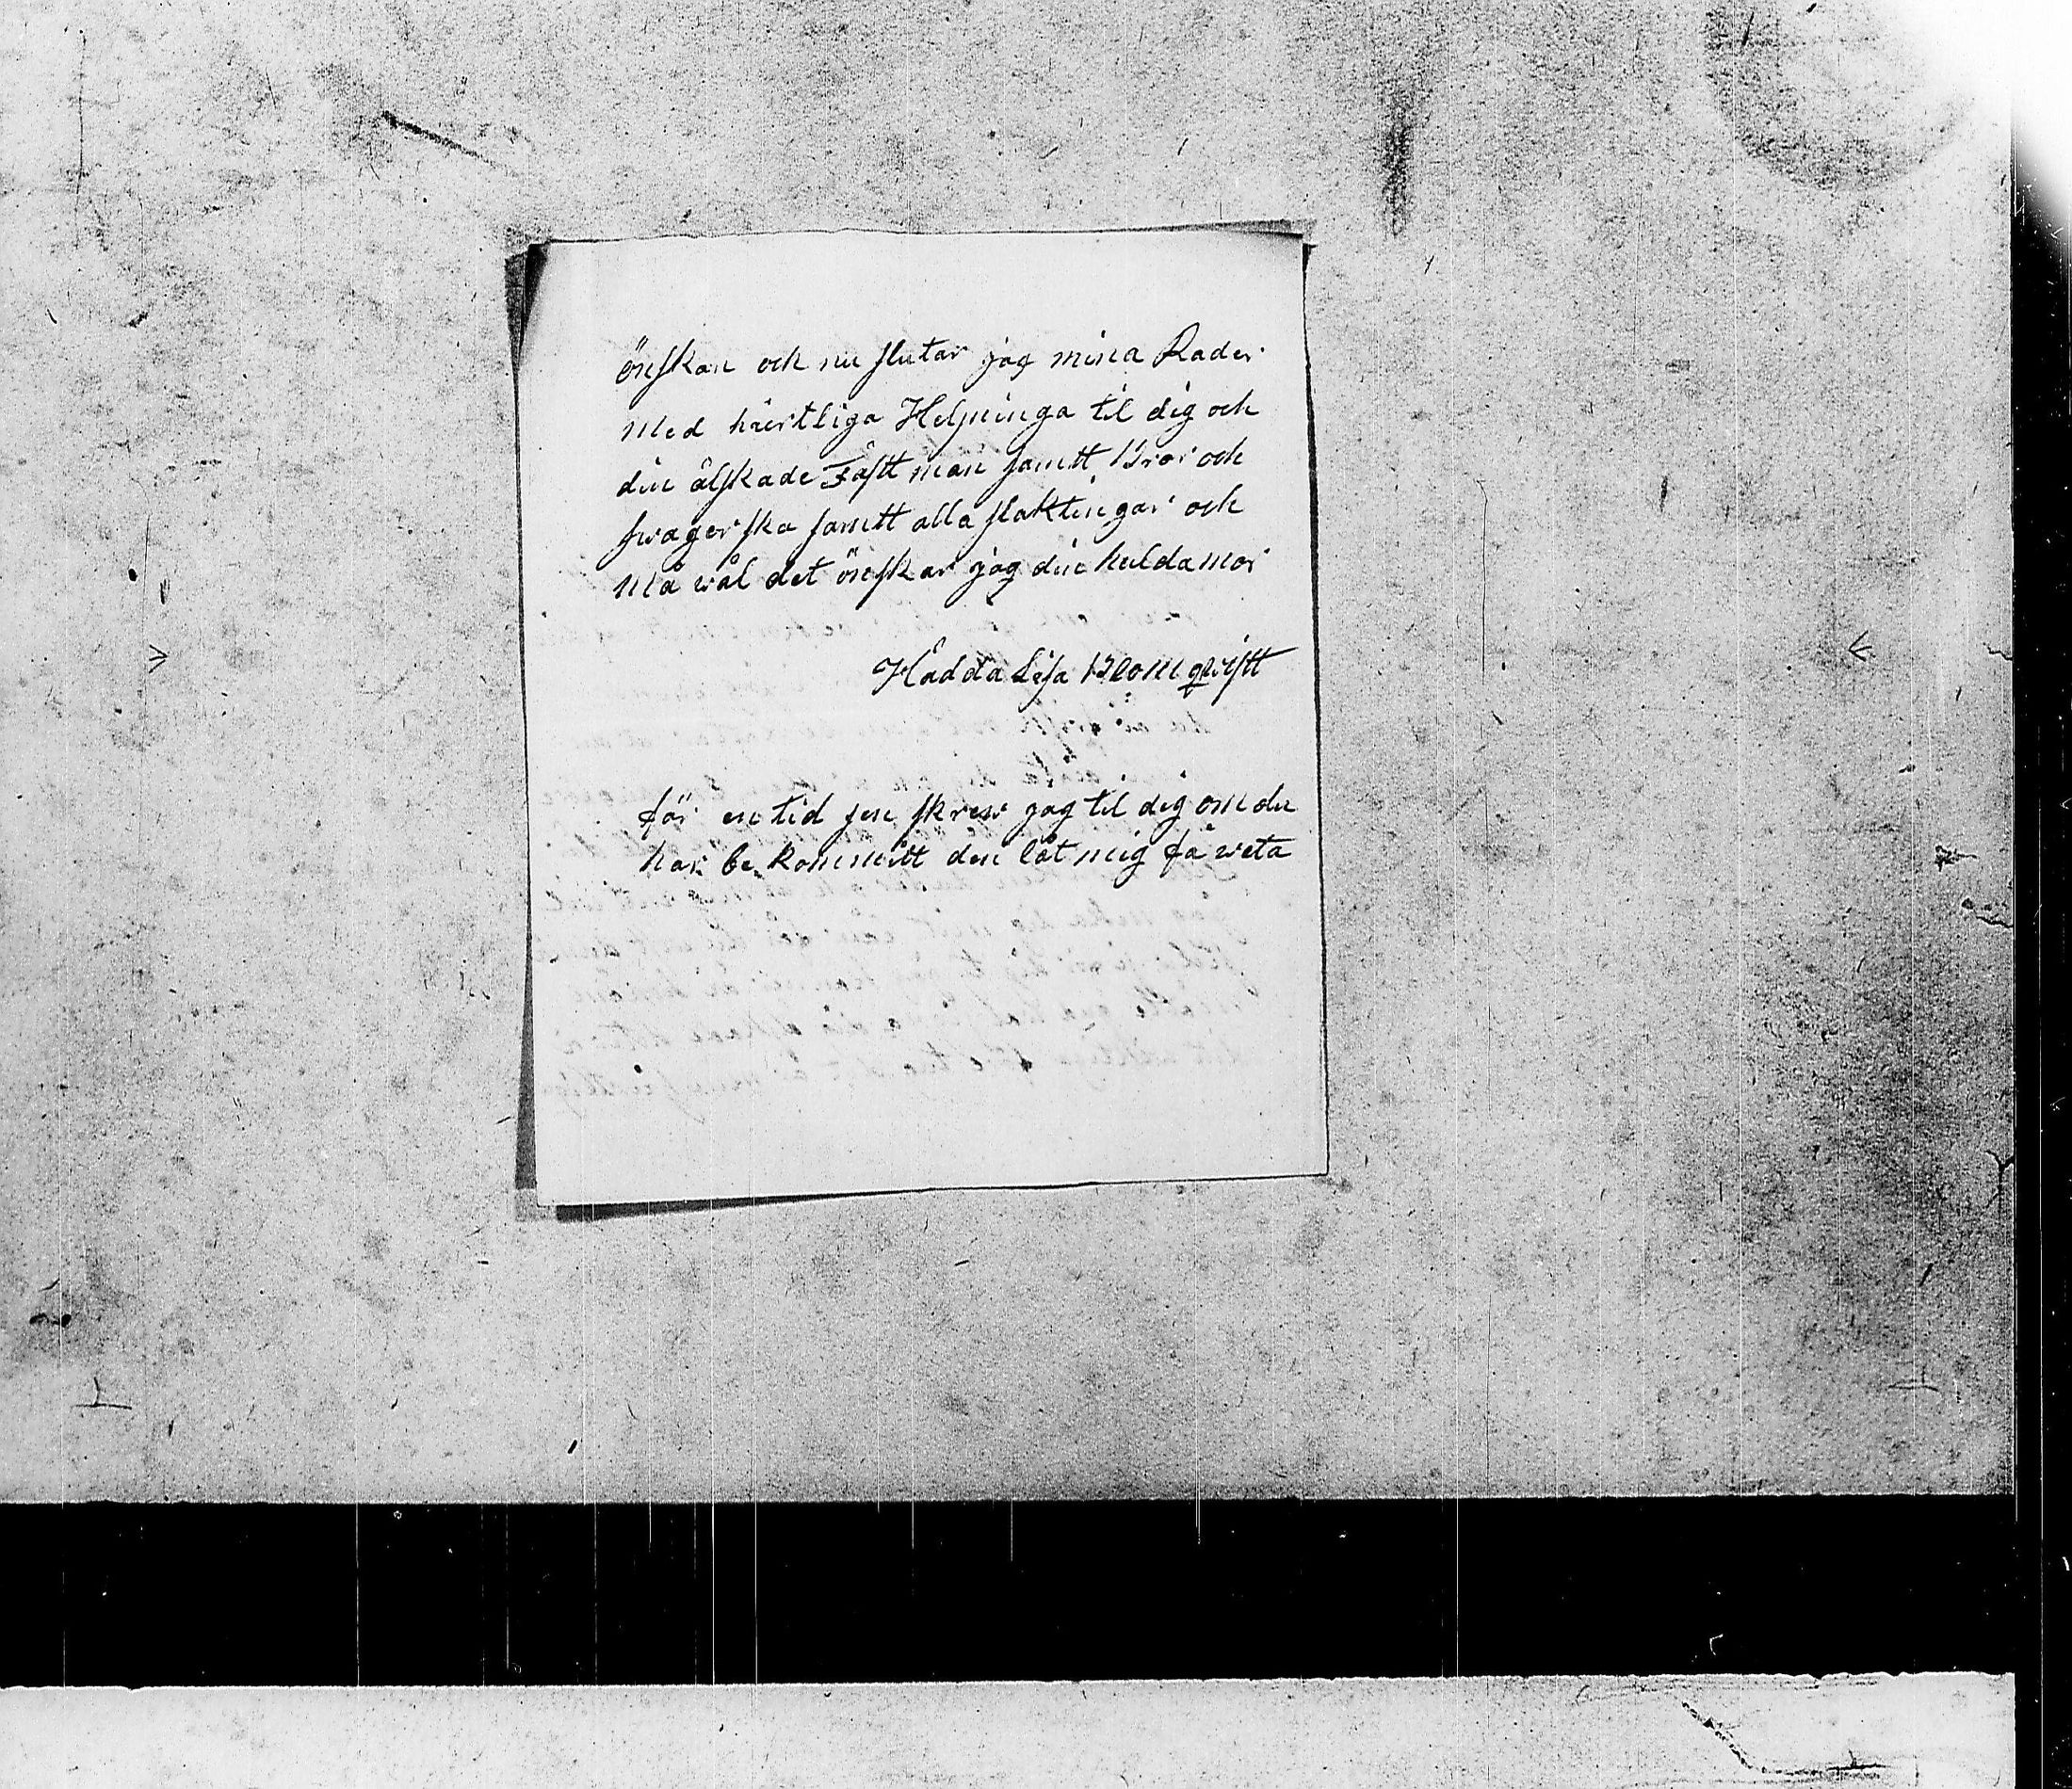 önskan och nu slutar jag mina Rader
med hiertliga Helsninga til dig och
din älskade Fästt man samtt Bror och
swagerska samtt alla slaktingar och
må wäl det önskar jag din huldamor
Hädda Lisa Blomqwistt
för en tid sen skrew jag til dig om du
har be kommitt den låt mig få weta